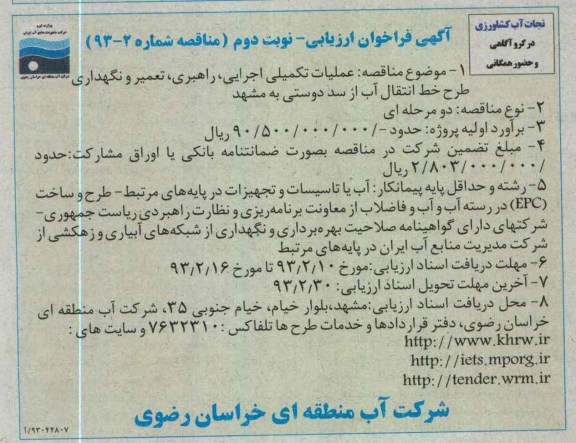 نجات آب کشاورزی
در گرو آگاهی
و حضور همگانی
آگهی فراخوان ارزیابی- نوبت دوم (مناقصه شماره ۲-۹۳)
۱- موضوع مناقصه: عملیات تکمیلی اجرایی، راهبری، تعمیر و نگهداری
طرح خط انتقال آب از سد دوستی به مشهد
۲- نوع مناقصه: دو مرحله ای
۳- برآورد اولیه پروژه: حدود -/۹۰/۵۰۰/۰۰۰/۰۰۰ ریال
۴- مبلغ تضمین شرکت در مناقصه بصورت ضمانتنامه بانکی یا اوراق مشارکت: حدود
/۲/۸۰۳/۰۰۰/۰۰۰ ریال
۵- رشته و حداقل پایه پیمانکار: آب یا تاسیسات و تجهیزات در پایه‌های مرتبط- طرح و ساخت
(EPC) در رسته آب و آب و فاضلاب از معاونت برنامه‌ریزی و نظارت راهبردی ریاست جمهوری-
شرکتهای دارای گواهینامه صلاحیت بهره‌برداری و نگهداری از شبکه‌های آبیاری و زهکشی از
شرکت مدیریت منابع آب ایران در پایه‌های مرتبط
۶- مهلت دریافت اسناد ارزیابی: مورخ ۹۳/۲/۱۰ تا مورخ ۹۳/۲/۱۶
۷- آخرین مهلت تحویل اسناد ارزیابی: ۹۳/۲/۳۰
۸- محل دریافت اسناد ارزیابی: مشهد، بلوار خیام، خیام جنوبی ۳۵، شرکت آب منطقه ای
خراسان رضوی، دفتر قراردادها و خدمات طرح ها تلفاکس: ۷۶۳۲۳۱۰ و سایت های:
http://www.khrw.ir
http://iets.mporg.ir
http://tender.wrm.ir
شرکت آب منطقه ای خراسان رضوی
آ/۹۳۰۲۲۸۰۷